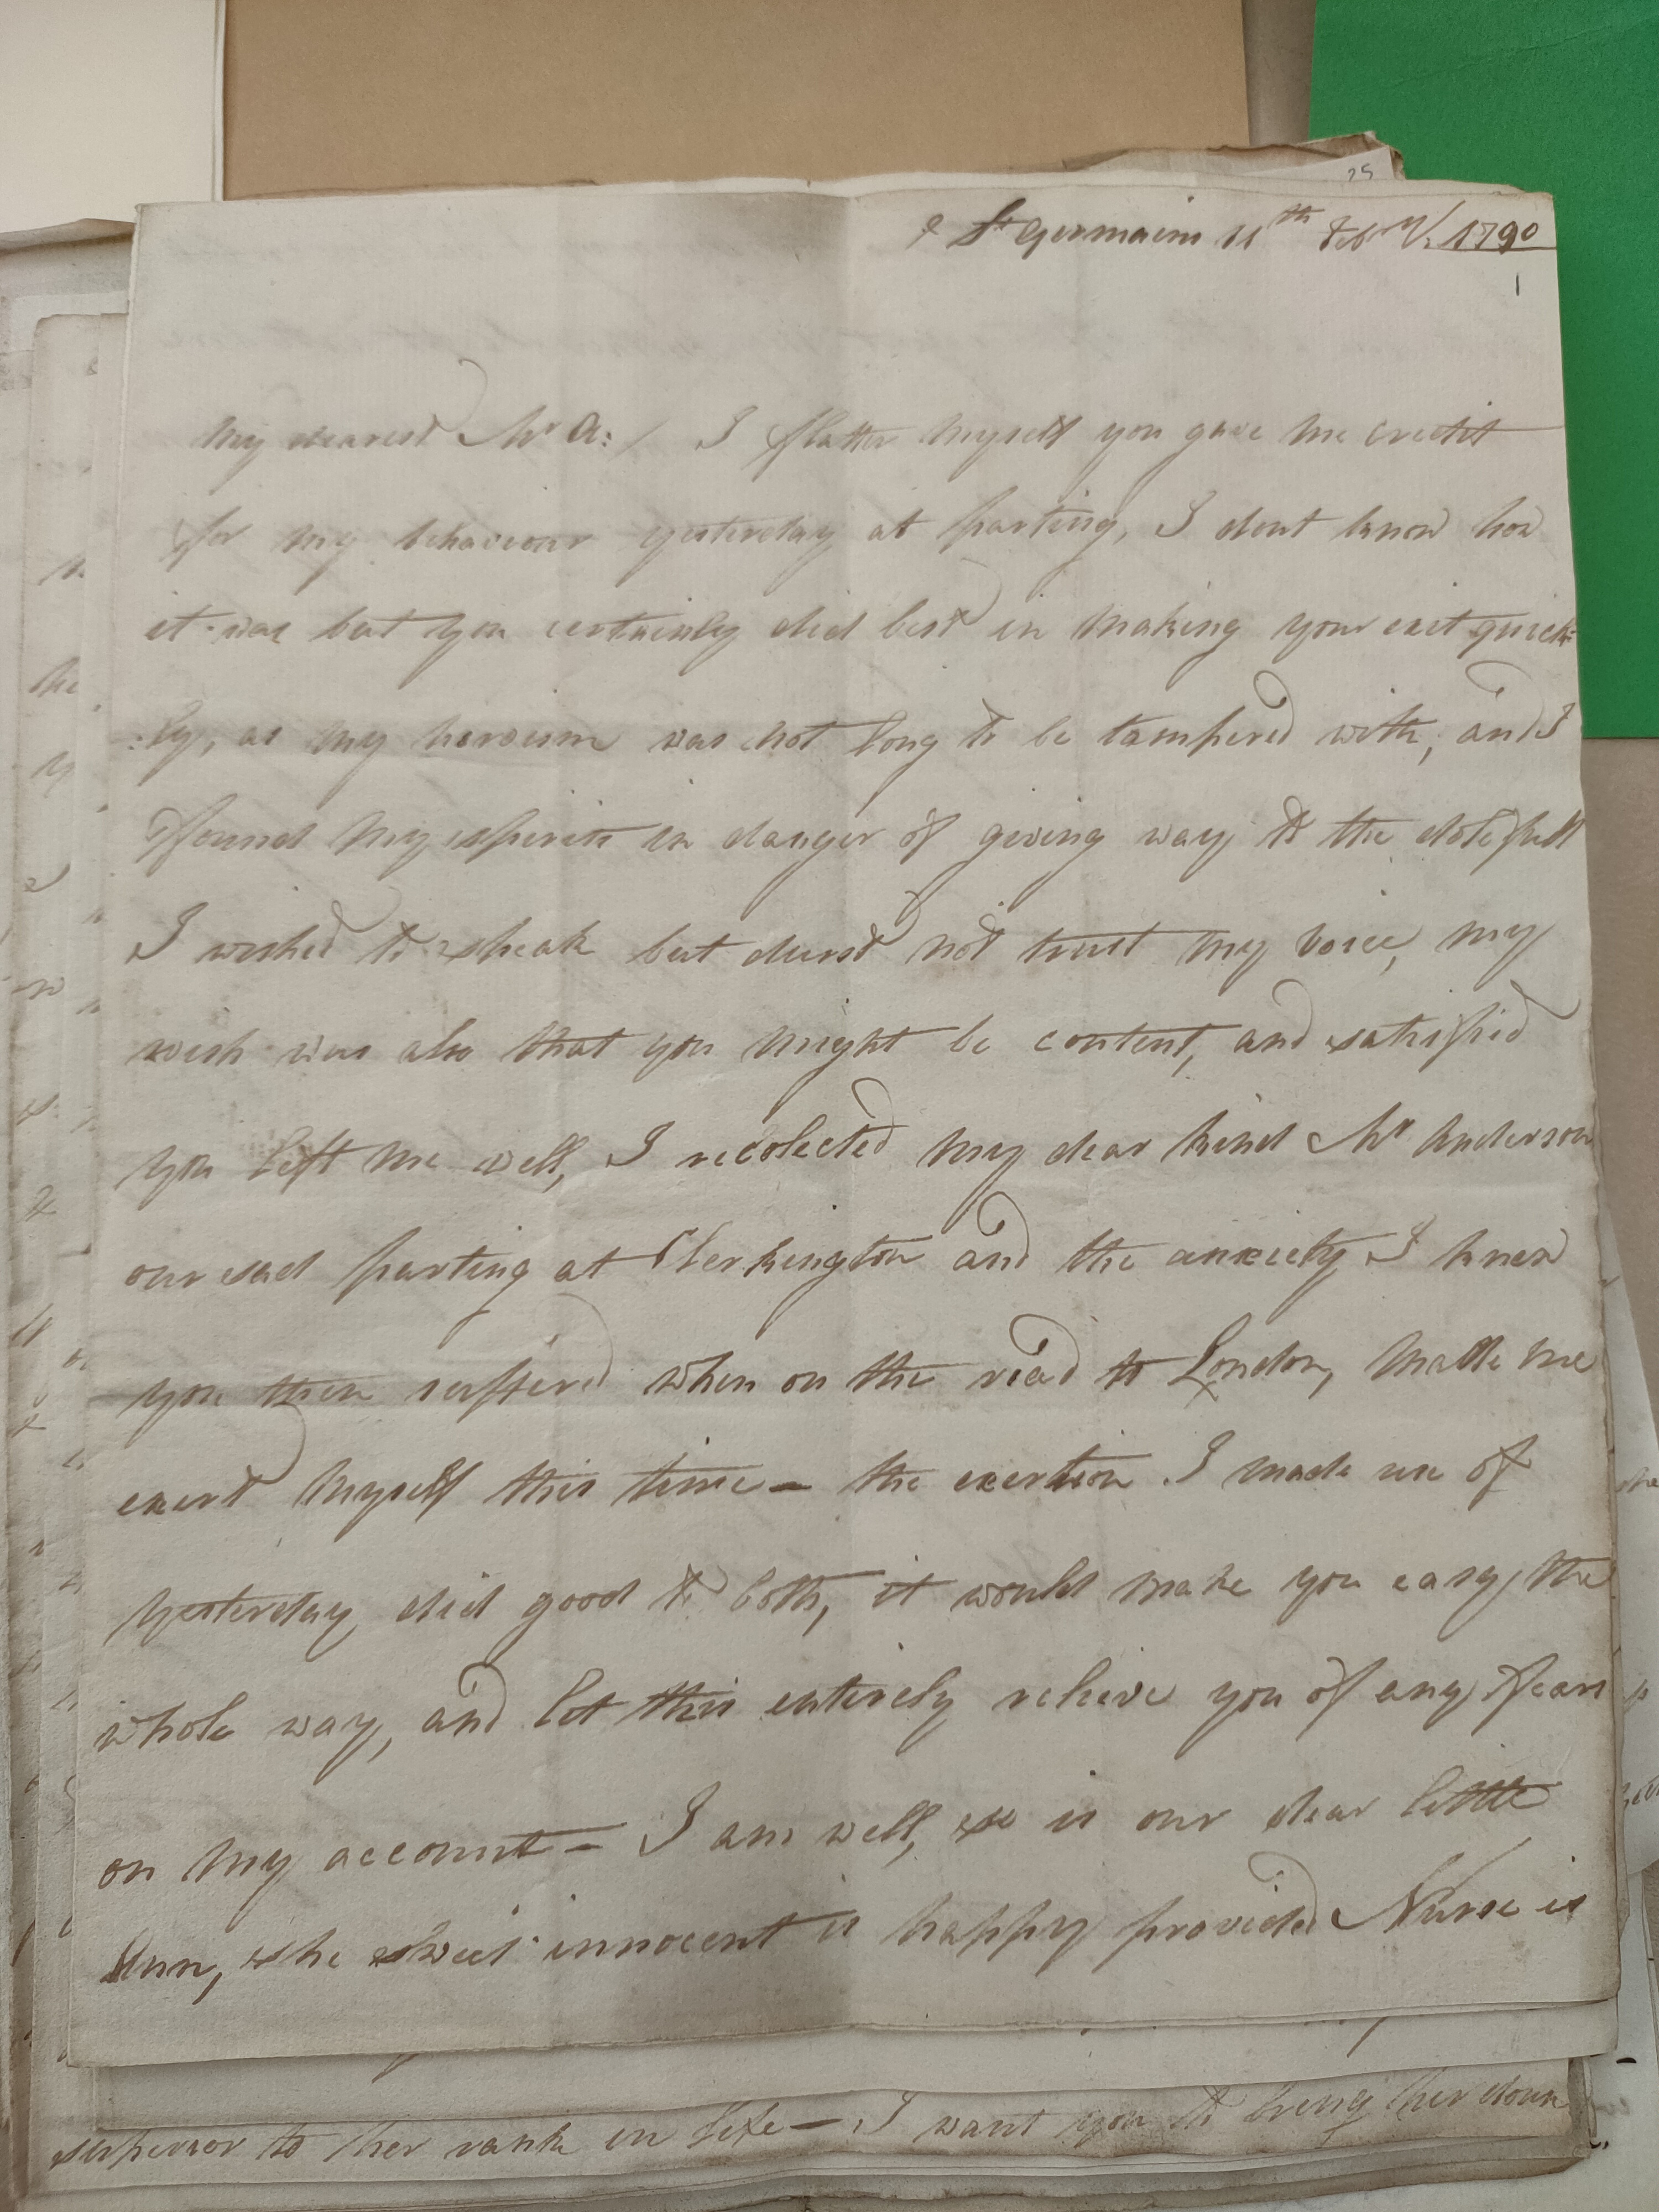 25
St Germains 11th Feby. 1790
1
My dearest Mr A:/ I flatter myself you gave me credit
for my behaviour yesterday at parting, I dont know how
it was but you certainly did best in making your exit quick=
:ly, as my heroism was not long to be tampered with, and I
found my spirits in danger of giving way to the dolefull
I wished to speak but durst not trust my voice, my
wish was also that you might be content, and satisfied
you left me well, I recolected my dear kind Mr Anderson
our sad parting at Clerkington and the anxiety I knew
you then suffered when on the road to London, made me
exert myself this time - the exertion I made use of
yesterday did good to both, it would make you easy the
whole way, and let this entirely relieve you of any fears
on my account - I am well, so is our dear little
Ann, she sweet innocent is happy provided Nurse is
superior to her rank in life - I want you to bring her down